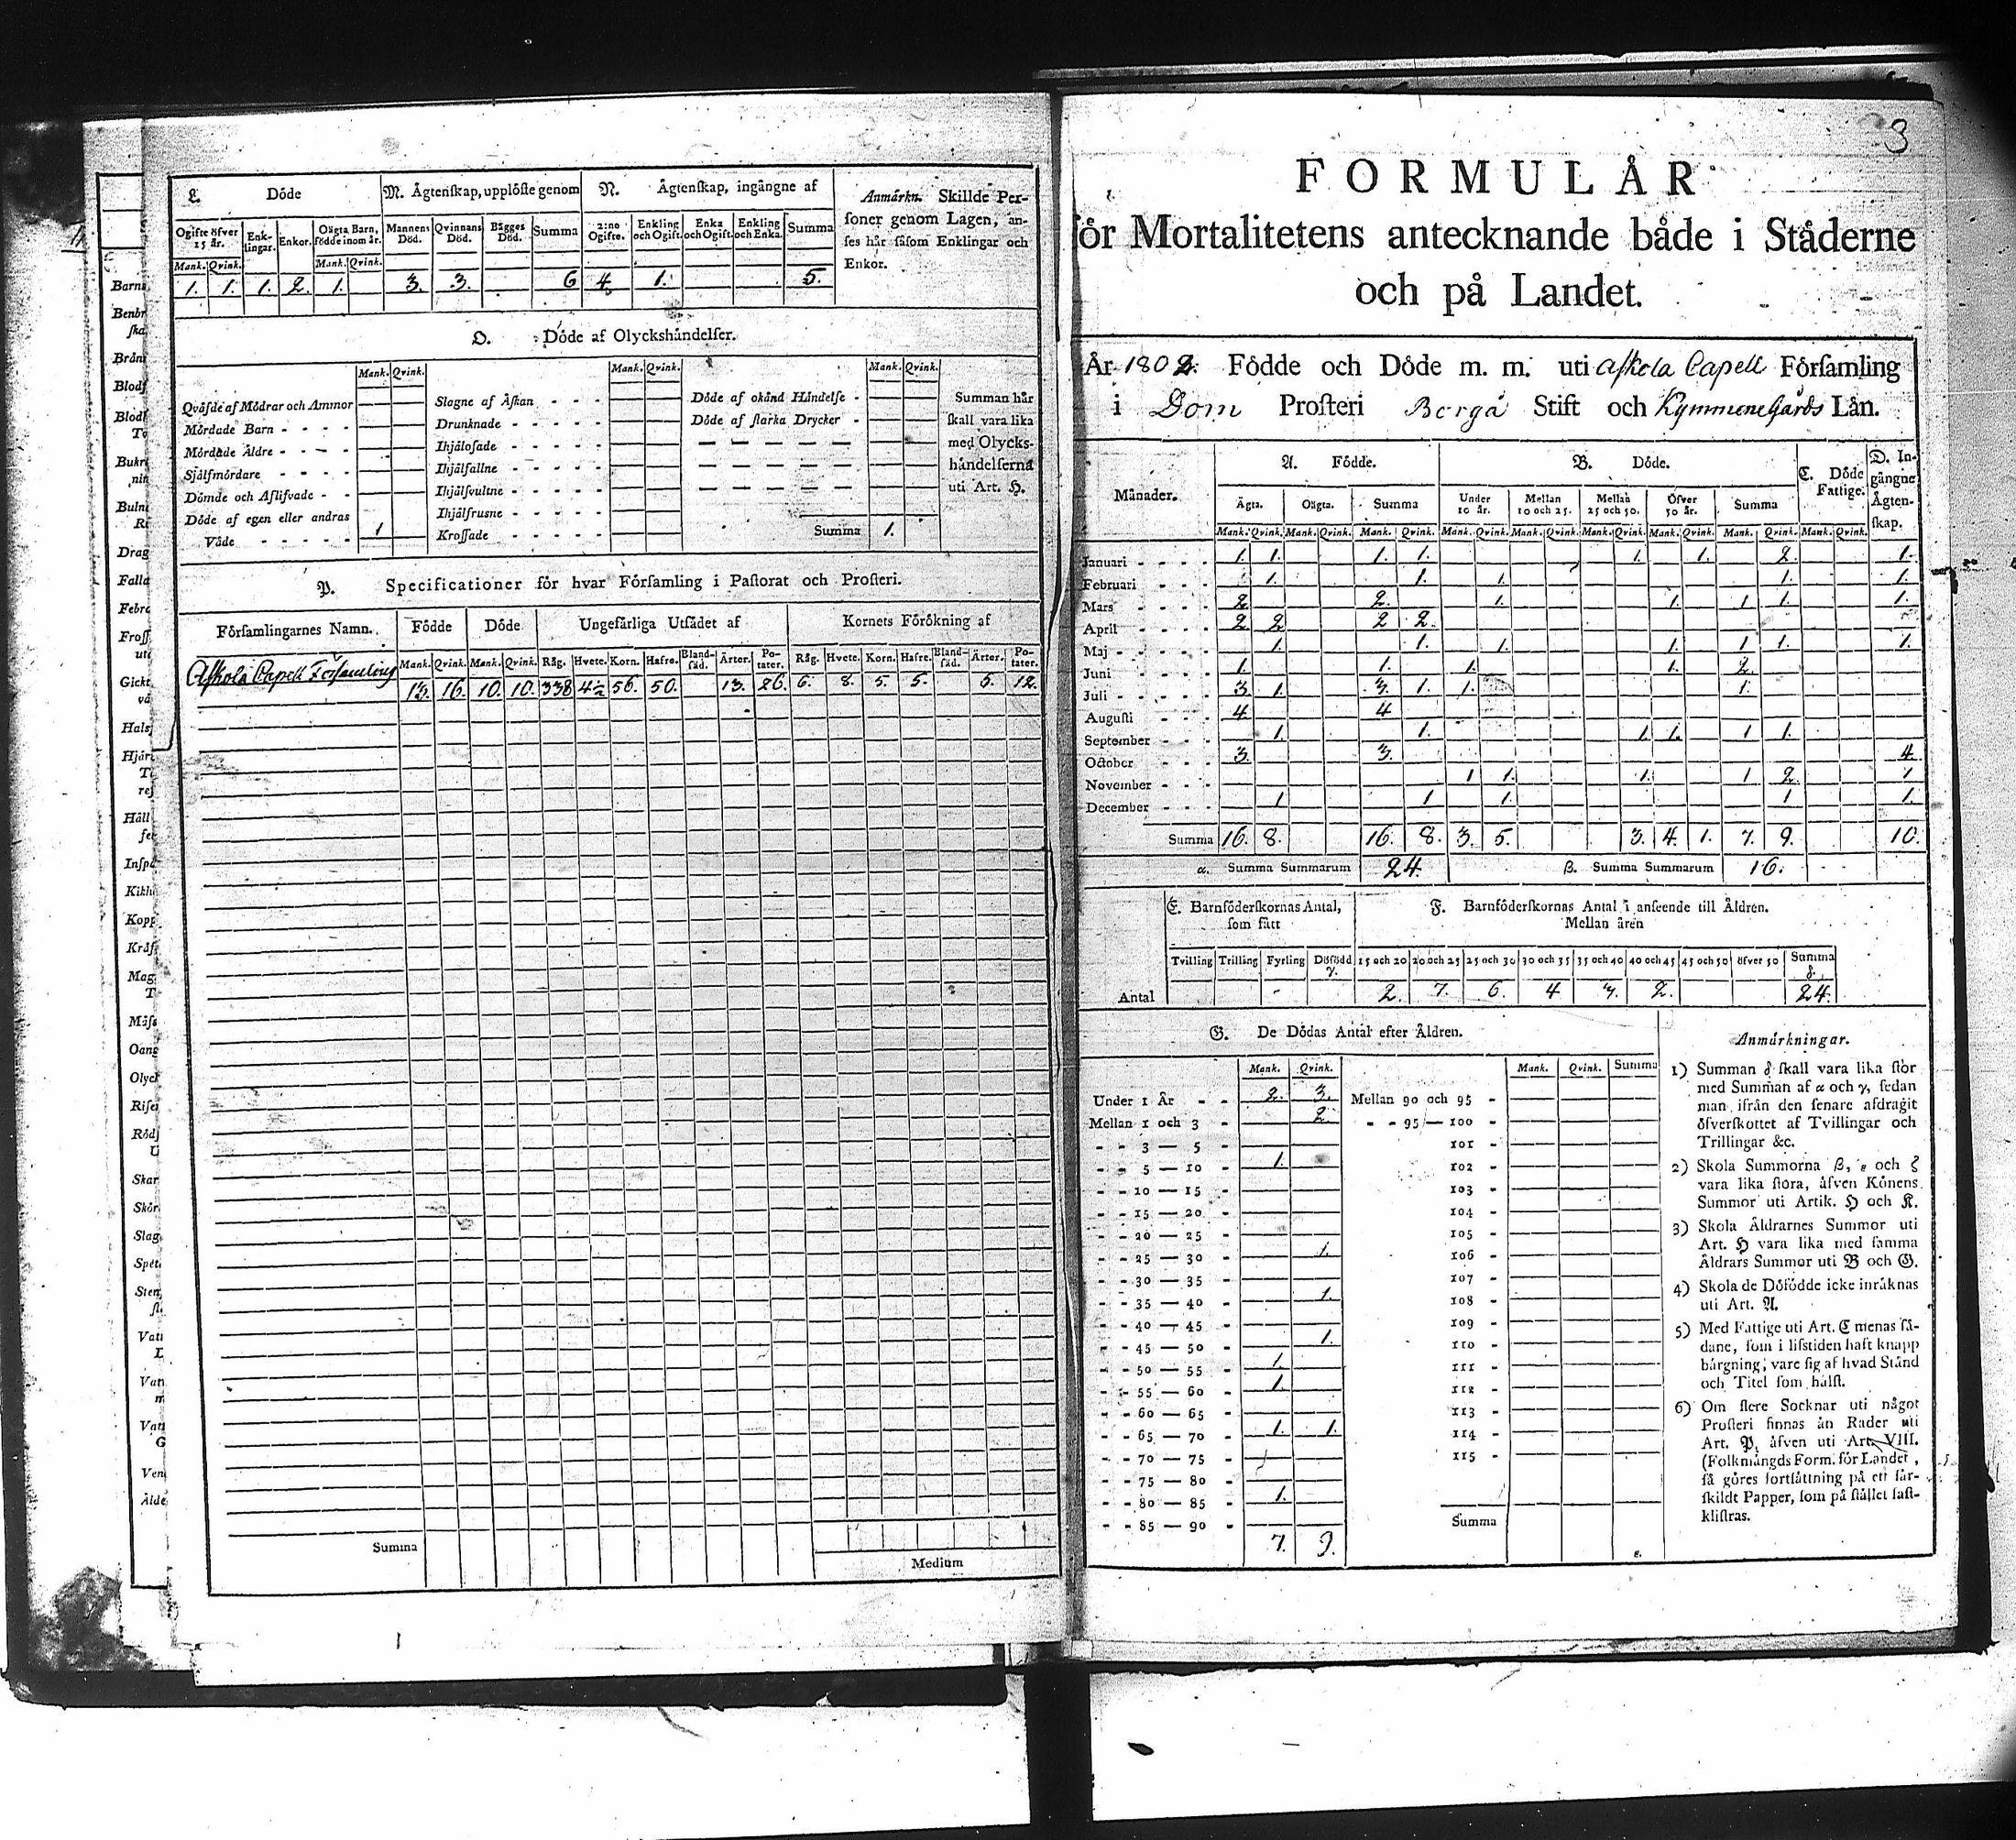 L. Döde
M. Ägtenskap, upplöste genom
N. Ägtenskap, ingångne af
Anmärkn. Skillde Per-
soner genom Lagen, an-
ses här såsom Enklingar och
Enkor.
Ogifte öfver 15 år. Enk-lingar. Enkor. Oägta Barn, födde inom år. Mannens Död. Qvinnans Död. Bägges Död. Summa 2:ne Ogifte. Enkling och Ogift. Enka och Ogift. Enkling och Enka. Summa
Mank. Qvink. Mank. Qvink.
1. 1. 1. 2. 1. 3. 3. 6 4. 1. 5.
O. Döde af Olyckshändelser.
Mank. Qvink. Mank. Qvink. Mank. Qvink.
Qväfde af Mödrar och Ammor
Mördade Barn
Mördade Äldre
Sjålfmördare
Dömde och Aflifvade
Döde af egen eller andras
Våde 1
Slagne af Åskan
Drunknade
Ihjälosade
Ihjälfallne
Ihjälsvultne
Ihjälfrusne
Krossade
Döde af okånd Håndelse
Döde af starka Drycker
Summa 1.
Summan hår
skall vara lika
med Olycks-
håndelserna
uti Art. H.
P. Specificationer för hvar Församling i Pastorat och Prosteri.
Församlingarnes Namn. Födde Döde Ungefärliga Utsädet af Kornets Förökning af
Mank. Qvink. Mank. Qvink. Råg. Hvete. Korn. Hafre. Bland-säd. Ärter. Po-tater. Råg. Hvete. Korn. Hafre. Bland-säd. Ärter. Po-tater.
Askola Capell Församling 13. 16. 10. 10. 338 4½ 56. 50. 13. 26. 6. 8. 5. 5. 5. 12.
Summa
Medium
3
FORMULÄR
för Mortalitetens antecknande både i Städerne
och på Landet.
År 1802. Födde och Döde m. m. uti Askola Capell Församling
i Dom Prosteri Borgå Stift och Kymmenegårds Län.
Månader. A. Födde. B. Döde. C. Döde Fattige. D. Ingångne Ägtenskap.
Ägta. Oägta. Summa Under 10 år. Mellan 10 och 25. Mellan 25 och 50. Öfver 50 år. Summa
Mank. Qvink. Mank. Qvink. Mank. Qvink. Mank. Qvink. Mank. Qvink. Mank. Qvink. Mank. Qvink. Mank. Qvink. Mank. Qvink.
Januari 1. 1. 1. 1. 1. 1. 2. 1.
Februari 1. 1. 1. 1. 1.
Mars 2 2. 1. 1. 1 1. 1.
April 2 2 2 2.
Maj 1. 1. 1. 1. 1 1. 1.
Juni 1. 1. 1. 1. 2.
Juli 3 1. 3. 1. 1. 1.
Augusti 4 4
September 1. 1. 1 1. 1 1.
October 3. 3. 4.
November 1 1. 1. 1 2 1
December 1 1 1. 1 1.
Summa 16. 8. 16. 8. 3. 5. 3. 4. 1. 7. 9. 10.
α. Summa Summarum 24. β. Summa Summarum 16.
E. Barnföderskornas Antal, som fått
F. Barnföderskornas Antal i anseende till Åldren. Mellan åren
Tvilling Trilling Fyrling Dödfödd γ. 15 och 20 20 och 25 25 och 30 30 och 35 35 och 40 40 och 45 45 och 50 öfver 50 Summa δ.
Antal 2. 7. 6. 4 3. 2. 24.
G. De Dödas Antal efter Åldren.
Mank. Qvink. Mank. Qvink. Summa
Under 1 År 2. 3.
Mellan 1 och 3 2
3 — 5
5 — 10 1.
10 — 15
15 — 20
20 — 25
25 — 30 1.
30 — 35
35 — 40 1.
40 — 45
45 — 50 1.
50 — 55 1.
55 — 60 1.
60 — 65
65 — 70 1. 1.
70 — 75
75 — 80
80 — 85 1.
85 — 90
7. 9.
Mellan 90 och 95
95 — 100
101
102
103
104
105
106
107
108
109
110
111
112
113
114
115
Summa
ε.
Anmårkningar.
1) Summan δ skall vara lika stor
med Summan af α och γ, sedan
man ifrån den senare afdragit
öfverskottet af Tvillingar och
Trillingar &c.
2) Skola Summorna β, ε och ζ
vara lika stora, åfven Könens
Summor uti Artik. H och K.
3) Skola Åldrarnes Summor uti
Art. H vara lika med samma
Åldrars Summor uti B och G.
4) Skola de Dödfödde icke inräknas
uti Art. A.
5) Med Fattige uti Art. C menas så-
dane, som i lifstiden haft knapp
bärgning, vare sig af hvad Stånd
och Titel som hålst.
6) Om flere Socknar uti något
Prosteri finnas än Rader uti
Art. P, åfven uti Art. VIII.
(Folkmängds Form. för Landet,
så göres fortsättning på ett sår-
skildt Papper, som på stället fast-
klistras.